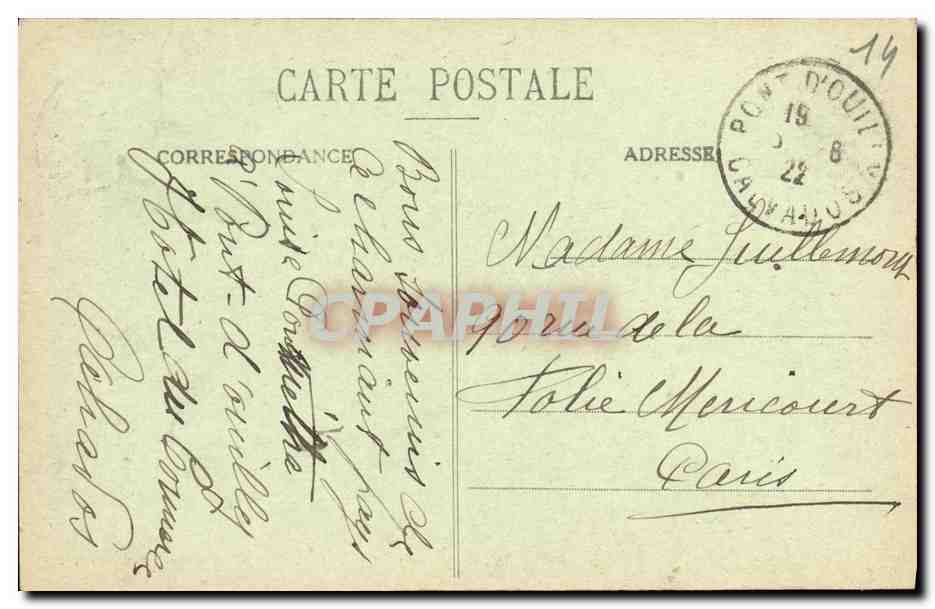 14
CARTE POSTALE
CORRESPONDANCE
ADRESSE
PONT D'OUILLY
19
8
22
CALVADOS
Bons souvenirs de
ce charmant pays
Louise
Pont-d'ouilly
Hôtel du Commerce
Calvados
Madame Guillemont
90 rue de la
Folie Mericourt
Paris
CPAPHIL